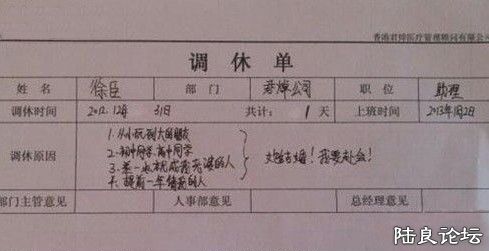 香港君焯医疗管理顾问有限公
调休单
姓名 徐臣 部门 君焯公司 职位 助理
调休时间 2012.12月 31日 共计：1天 上班时间 2013年1月2日
调休原因
1.从小玩到大的朋友
2.初中同学、高中同学
3.差一点就成我老婆的人
4.提前一年请我的人
她结婚！我要赴会！
部门主管意见 人事部意见 总经理意见
陆良论坛